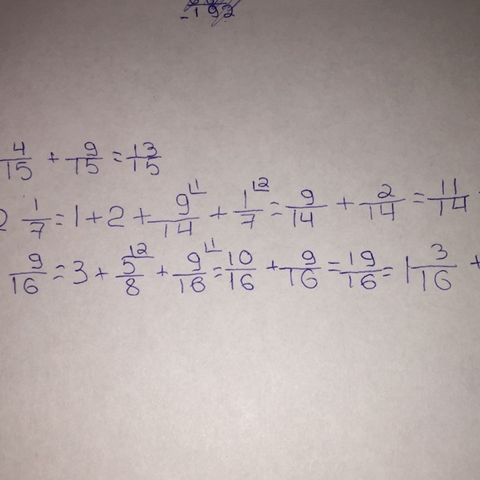 -192
4/15 + 9/15 = 13/15
2 1/7 = 1 + 2 + 9/14 |1 + 1/7 |2 = 9/14 + 2/14 = 11/14
9/16 = 3 + 5/8 |2 + 9/16 |1 = 10/16 + 9/16 = 19/16 = 1 3/16 +